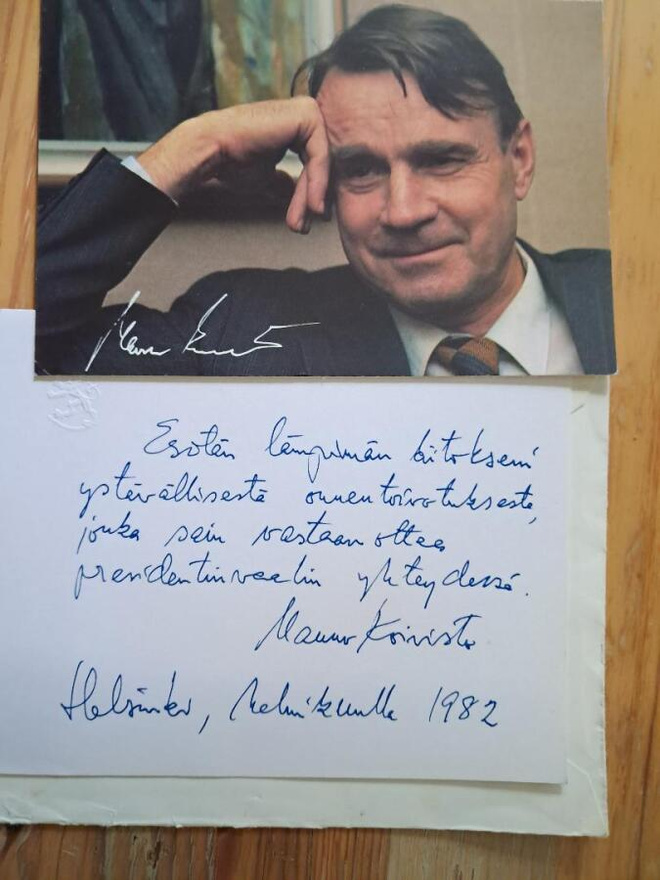 Mauno Koivisto
Esitän lämpimän kiitokseni
ystävällisestä onnentoivotuksesta,
jonka sain vastaanottaa
presidentinvaalin yhteydessä.
Mauno Koivisto
Helsinki, helmikuulla 1982